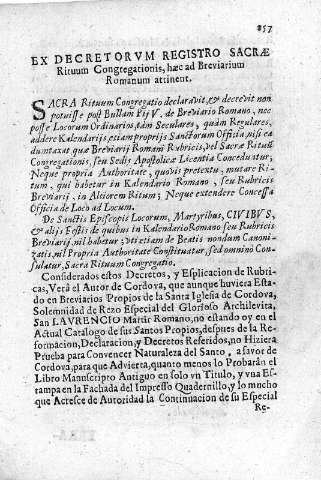 257
EX DECRETORVM REGISTRO SACRÆ
Rituum Congregationis, hæc ad Breviarium
Romanum attinent.
SACRA Rituum Congregatio declaravit, & decrevit non
potuisse post Bullam Pij V. de Breviario Romano, nec
posse Locorum Ordinarios, tàm Seculares, quàm Regulares,
addere Kalendarijs, etiam proprijs Sanctorum Officia, nisi ea
dumtaxat quæ Breviarij Romani Rubricis, vel Sacræ Rituum
Congregationis, seu Sedis Apostolicæ Licentia Conceduntur;
Neque propria Authoritate, quovis prætextu, mutare Ri-
tum, qui habetur in Kalendario Romano, seu Rubricis
Breviarij, in Altiorem Ritum; Neque extendere Concessa
Officia de Loco ad Locum.
De Sanctis Episcopis Locorum, Martyribus, CIVIBVS,
& alijs Festis de quibus in Kalendario Romano seu Rubricis
Breviarij, nil habetur; vti etiam de Beatis nondum Canoni-
zatis, nil Propria Authoritate Constituatur, sed omninò Con-
sulatur, Sacra Rituum Congregatio.
Considerados estos Decretos, y Esplicacion de Rubri-
cas, Verá el Autor de Cordova, que aunque huviera Esta-
do en Breviarios Propios de la Santa Iglesia de Cordova,
Solemnidad de Rezo Especial del Glorioso Archilevita,
San LAVRENCIO Martir Romano, no estando oy en el
Actual Catálogo de sus Santos Propios, despues de la Re-
formacion, Declaracion, y Decretos Referidos, no Hiziera
Prueba para Convencer Naturaleza del Santo, a favor de
Cordova, para que Advierta, quanto menos lo Probarán el
Libro Manuscripto Antiguo en solo vn Titulo, y vna Es-
tampa en la Fachada del Impresso Quadernillo, y lo mucho
que Acresce de Autoridad la Continuacion de su Especial
Re-